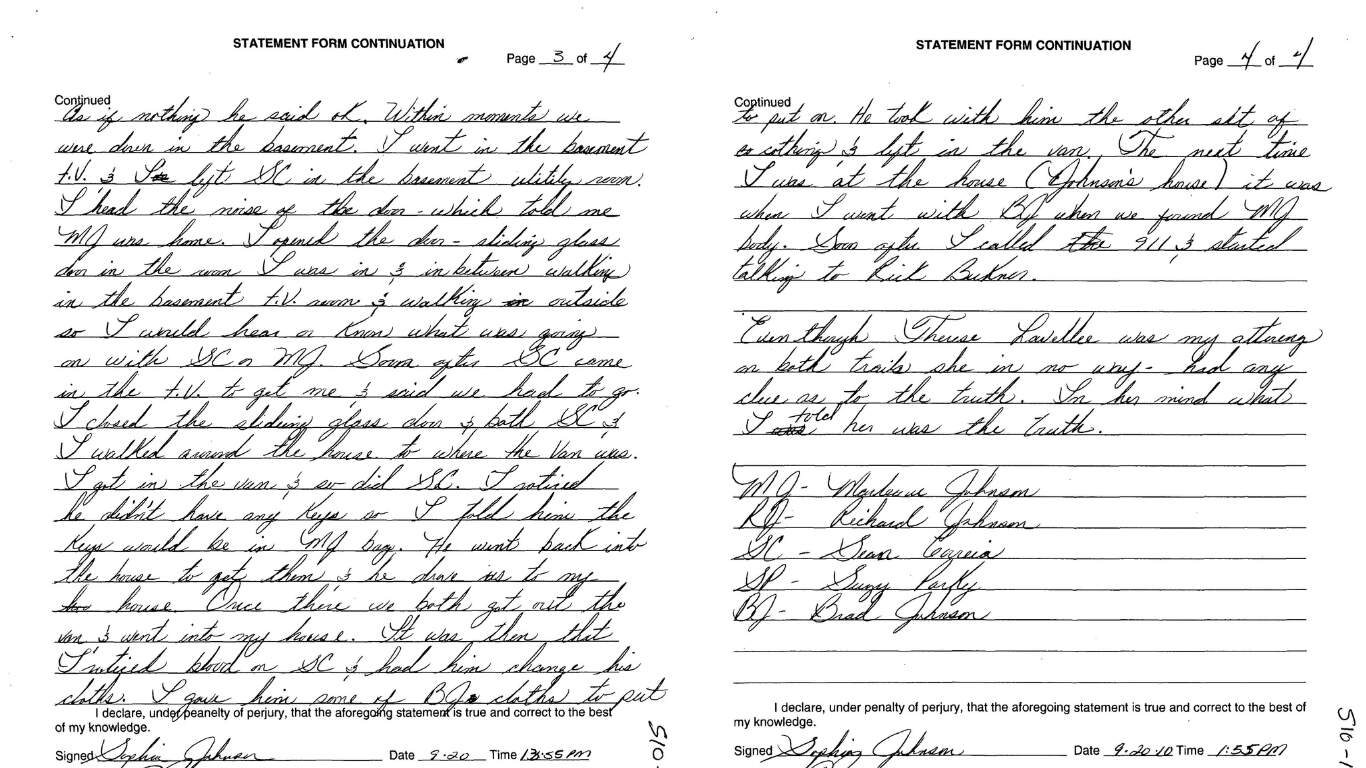 STATEMENT FORM CONTINUATION
Page 3 of 4
Continued
As if nothing he said ok. Within moments we
were down in the basement. I went in the basement
t.v. & left SC in the basement utitily room.
I head the noise of the door - which told me
MJ was home. I opened the door - sliding glass
door in the room I was in & inbetween walking
in the basement t.v. room & walking in outside
so I would hear or know what was going
on with SC or MJ. Soon after SC came
in the t.v. to get me & said we had to go.
I closed the slideing glass door & both SC &
I walked around the house to where the Van was.
I got in the van & so did SC. I noticed
he didn't have any keys so I told him the
keys would be in MJ bag. He went back into
the house to get them & he drove us to my
house. Once there we both got out the
van & went into my house. It was then that
I noticed blood on SC & had him change his
cloths. I gave him some of BJ cloths to put
I declare, under peanelty of perjury, that the aforegoing statement is true and correct to the best
of my knowledge.
Signed Sophia Johnson Date 9-20 Time 1:55 PM
510-
STATEMENT FORM CONTINUATION
Page 4 of 4
Continued
to put on. He took with him the other sht of
cothing & left in the van. The next time
I was at the house (Johnson's house) it was
when I went with BJ when we found MJ
body. Soon after I called 911 & started
talking to Rick Buknor.
Even though Therese Lavallee was my attoreny
on both trails she in no way - had any
clue as to the truth. In her mind what
I told her was the truth.
MJ - Johnson
RJ - Richard Johnson
SC - Sean Correia
SP - Suzy Parky
BJ - Brad Johnson
I declare, under penalty of perjury, that the aforegoing statement is true and correct to the best of
my knowledge.
Signed Sophia Johnson Date 9-20-10 Time 1:55 PM
510-1